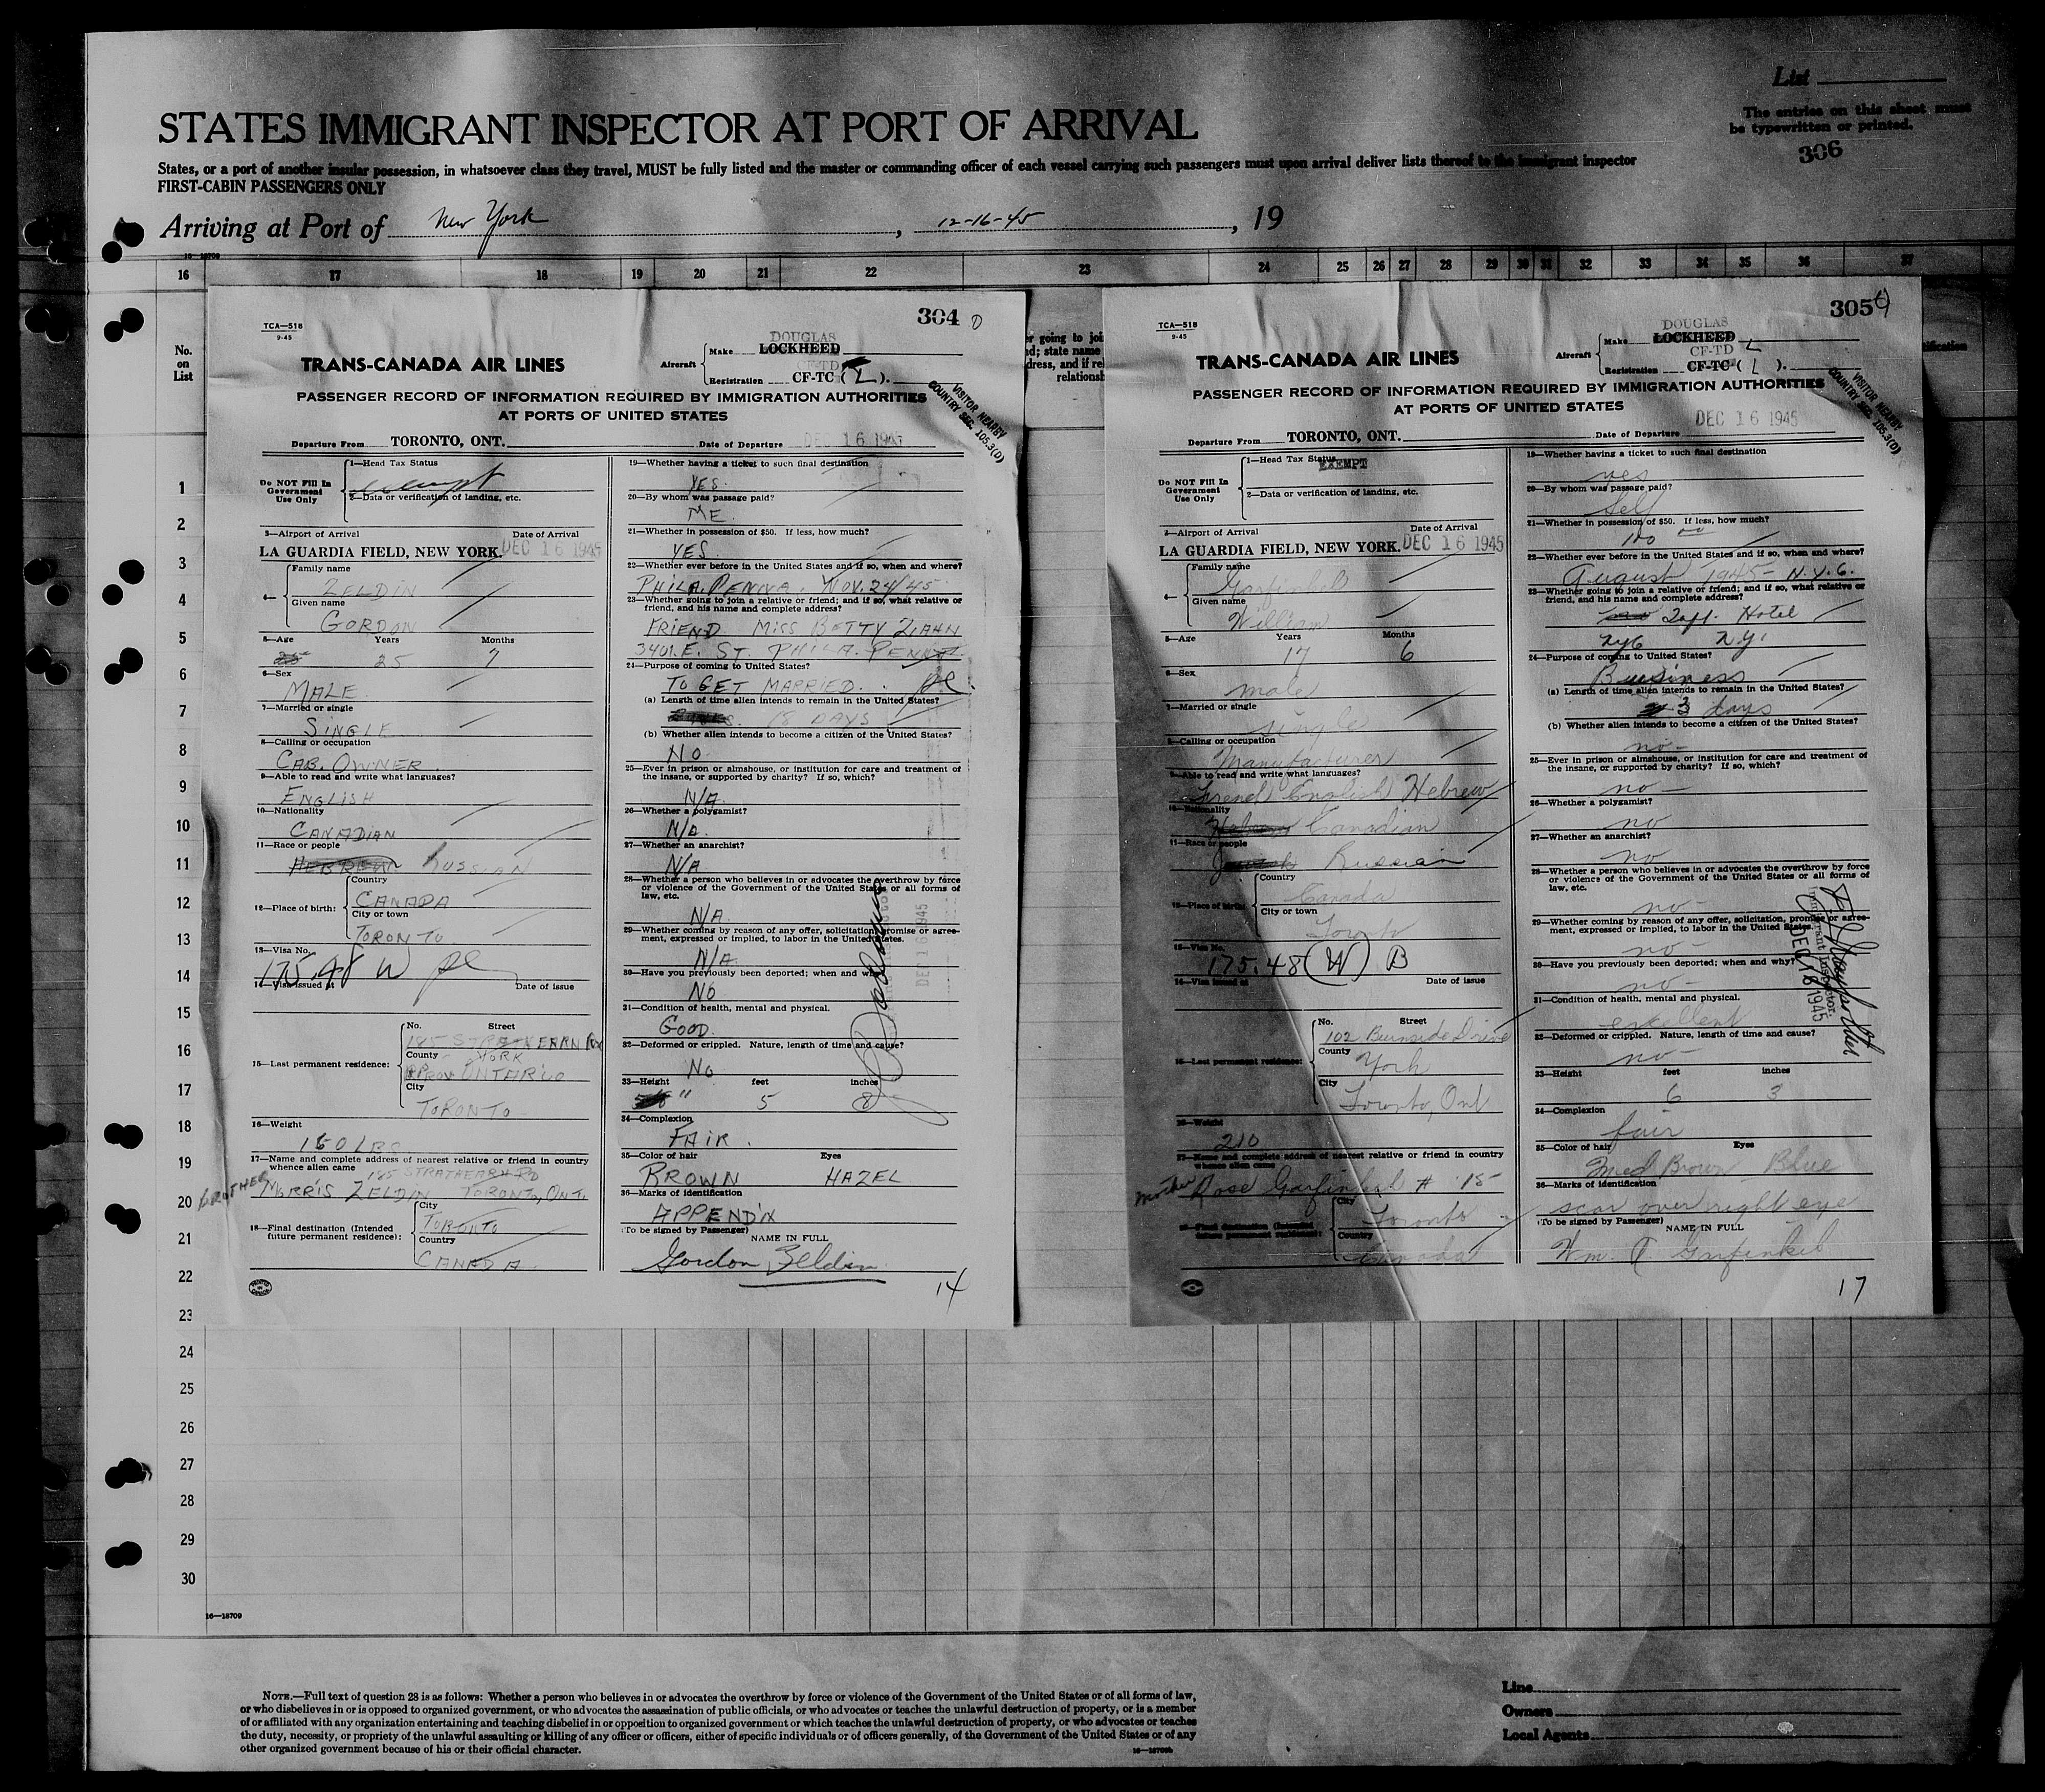 List
The entries on this sheet must
be typewritten or printed.
306
STATES IMMIGRANT INSPECTOR AT PORT OF ARRIVAL
States, or a port of another insular possession, in whatsoever class they travel, MUST be fully listed and the master or commanding officer of each vessel carrying such passengers must upon arrival deliver lists thereof to the immigrant inspector
FIRST-CABIN PASSENGERS ONLY
Arriving at Port of New York, 12-16-45, 19
16—18709
16 17 18 19 20 21 22 23 24 25 26 27 28 29 30 31 32 33 34 35 36 37
No.
on
List
304
TCA—518
9-45
DOUGLAS
Aircraft Make LOCKHEED
CF-TD
Registration CF-TC (L).
TRANS-CANADA AIR LINES
VISITOR NEARBY
COUNTRY SEC. 105.3(D)
PASSENGER RECORD OF INFORMATION REQUIRED BY IMMIGRATION AUTHORITIES
AT PORTS OF UNITED STATES
Departure From TORONTO, ONT. Date of Departure DEC 16 1945
Do NOT Fill In
Government
Use Only
1—Head Tax Status
Exempt
2—Data or verification of landing, etc.
3—Airport of Arrival Date of Arrival
LA GUARDIA FIELD, NEW YORK. DEC 16 1945
4— Family name
ZELDIN
Given name
GORDON
5—Age Years Months
25 7
6—Sex
MALE
7—Married or single
SINGLE
8—Calling or occupation
CAB. OWNER
9—Able to read and write what languages?
ENGLISH
10—Nationality
CANADIAN
11—Race or people
HEBREW RUSSIAN
12—Place of birth: Country
CANADA
City or town
TORONTO
13—Visa No.
175.48 W
14—Visa issued at Date of issue
15—Last permanent residence: No. Street
195 STRATHEARN RD
County YORK
Prov ONTARIO
City
TORONTO
16—Weight
150 LBS
17—Name and complete address of nearest relative or friend in country
whence alien came 195 STRATHEARN RD
BROTHER MORRIS ZELDIN TORONTO, ONT.
18—Final destination (Intended
future permanent residence): City
TORONTO
Country
CANADA
19—Whether having a ticket to such final destination
YES.
20—By whom was passage paid?
ME.
21—Whether in possession of $50. If less, how much?
YES.
22—Whether ever before in the United States and if so, when and where?
PHILA. PENNA NOV. 24/45
23—Whether going to join a relative or friend; and if so, what relative or
friend, and his name and complete address?
FRIEND MISS BETTY ZIAHN
3401. E. ST. PHILA. PENNA.
24—Purpose of coming to United States?
TO GET MARRIED.
(a) Length of time alien intends to remain in the United States?
18 DAYS
(b) Whether alien intends to become a citizen of the United States?
NO
25—Ever in prison or almshouse, or institution for care and treatment of
the insane, or supported by charity? If so, which?
N/A
26—Whether a polygamist?
N/A.
27—Whether an anarchist?
N/A
28—Whether a person who believes in or advocates the overthrow by force
or violence of the Government of the United States or all forms of
law, etc.
N/A.
29—Whether coming by reason of any offer, solicitation, promise or agree-
ment, expressed or implied, to labor in the United States.
N/A
30—Have you previously been deported; when and why?
NO
31—Condition of health, mental and physical.
GOOD.
32—Deformed or crippled. Nature, length of time and cause?
NO
33—Height feet inches
5 8
34—Complexion
FAIR.
35—Color of hair Eyes
BROWN HAZEL
36—Marks of identification
APPENDIX
(To be signed by Passenger) NAME IN FULL
Gordon Zeldin
14
DEC 16 1945
305
TCA—518
9-45
DOUGLAS
Aircraft Make LOCKHEED
CF-TD L
Registration CF-TC ( L ).
TRANS-CANADA AIR LINES
VISITOR NEARBY
COUNTRY SEC. 105.3(D)
PASSENGER RECORD OF INFORMATION REQUIRED BY IMMIGRATION AUTHORITIES
AT PORTS OF UNITED STATES
Departure From TORONTO, ONT. Date of Departure DEC 16 1945
Do NOT Fill In
Government
Use Only
1—Head Tax Status
EXEMPT
2—Data or verification of landing, etc.
3—Airport of Arrival Date of Arrival
LA GUARDIA FIELD, NEW YORK. DEC 16 1945
4— Family name
Garfinkel
Given name
William
5—Age Years Months
17 6
6—Sex
male
7—Married or single
single
8—Calling or occupation
Manufacturer
9—Able to read and write what languages?
French English Hebrew
10—Nationality
Canadian
11—Race or people
Jewish Russian
12—Place of birth: Country
Canada
City or town
Toronto
13—Visa No.
175.48 (W) B
14—Visa issued at Date of issue
15—Last permanent residence: No. Street
102 Burnside Drive
County
York
City
Toronto, Ont
16—Weight
210
17—Name and complete address of nearest relative or friend in country
whence alien came
mother Rose Garfinkel # 15
18—Final destination (Intended
future permanent residence): City
Toronto
Country
Canada
19—Whether having a ticket to such final destination
yes
20—By whom was passage paid?
Self
21—Whether in possession of $50. If less, how much?
100 00
22—Whether ever before in the United States and if so, when and where?
August 1945 - N.Y.C.
23—Whether going to join a relative or friend; and if so, what relative or
friend, and his name and complete address?
Taft Hotel
NYC N.Y.
24—Purpose of coming to United States?
Business
(a) Length of time alien intends to remain in the United States?
3 days
(b) Whether alien intends to become a citizen of the United States?
no -
25—Ever in prison or almshouse, or institution for care and treatment of
the insane, or supported by charity? If so, which?
no -
26—Whether a polygamist?
no
27—Whether an anarchist?
no
28—Whether a person who believes in or advocates the overthrow by force
or violence of the Government of the United States or all forms of
law, etc.
no -
29—Whether coming by reason of any offer, solicitation, promise or agree-
ment, expressed or implied, to labor in the United States.
no -
30—Have you previously been deported; when and why?
no -
31—Condition of health, mental and physical.
excellent
32—Deformed or crippled. Nature, length of time and cause?
no -
33—Height feet inches
6 3
34—Complexion
fair
35—Color of hair Eyes
Med Brown Blue
36—Marks of identification
scar over right eye
(To be signed by Passenger) NAME IN FULL
Wm. T. Garfinkel
17
Immigrant Inspector
DEC 16 1945
1
2
3
4
5
6
7
8
9
10
11
12
13
14
15
16
17
18
19
20
21
22
23
24
25
26
27
28
29
30
16—18709
NOTE.—Full text of question 28 is as follows: Whether a person who believes in or advocates the overthrow by force or violence of the Government of the United States or of all forms of law,
or who disbelieves in or is opposed to organized government, or who advocates the assassination of public officials, or who advocates or teaches the unlawful destruction of property, or is a member
of or affiliated with any organization entertaining and teaching disbelief in or opposition to organized government or which teaches the unlawful destruction of property, or who advocates or teaches
the duty, necessity, or propriety of the unlawful assaulting or killing of any officer or officers, either of specific individuals or of officers generally, of the Government of the United States or of any
other organized government because of his or their official character.
Line
Owners
Local Agents